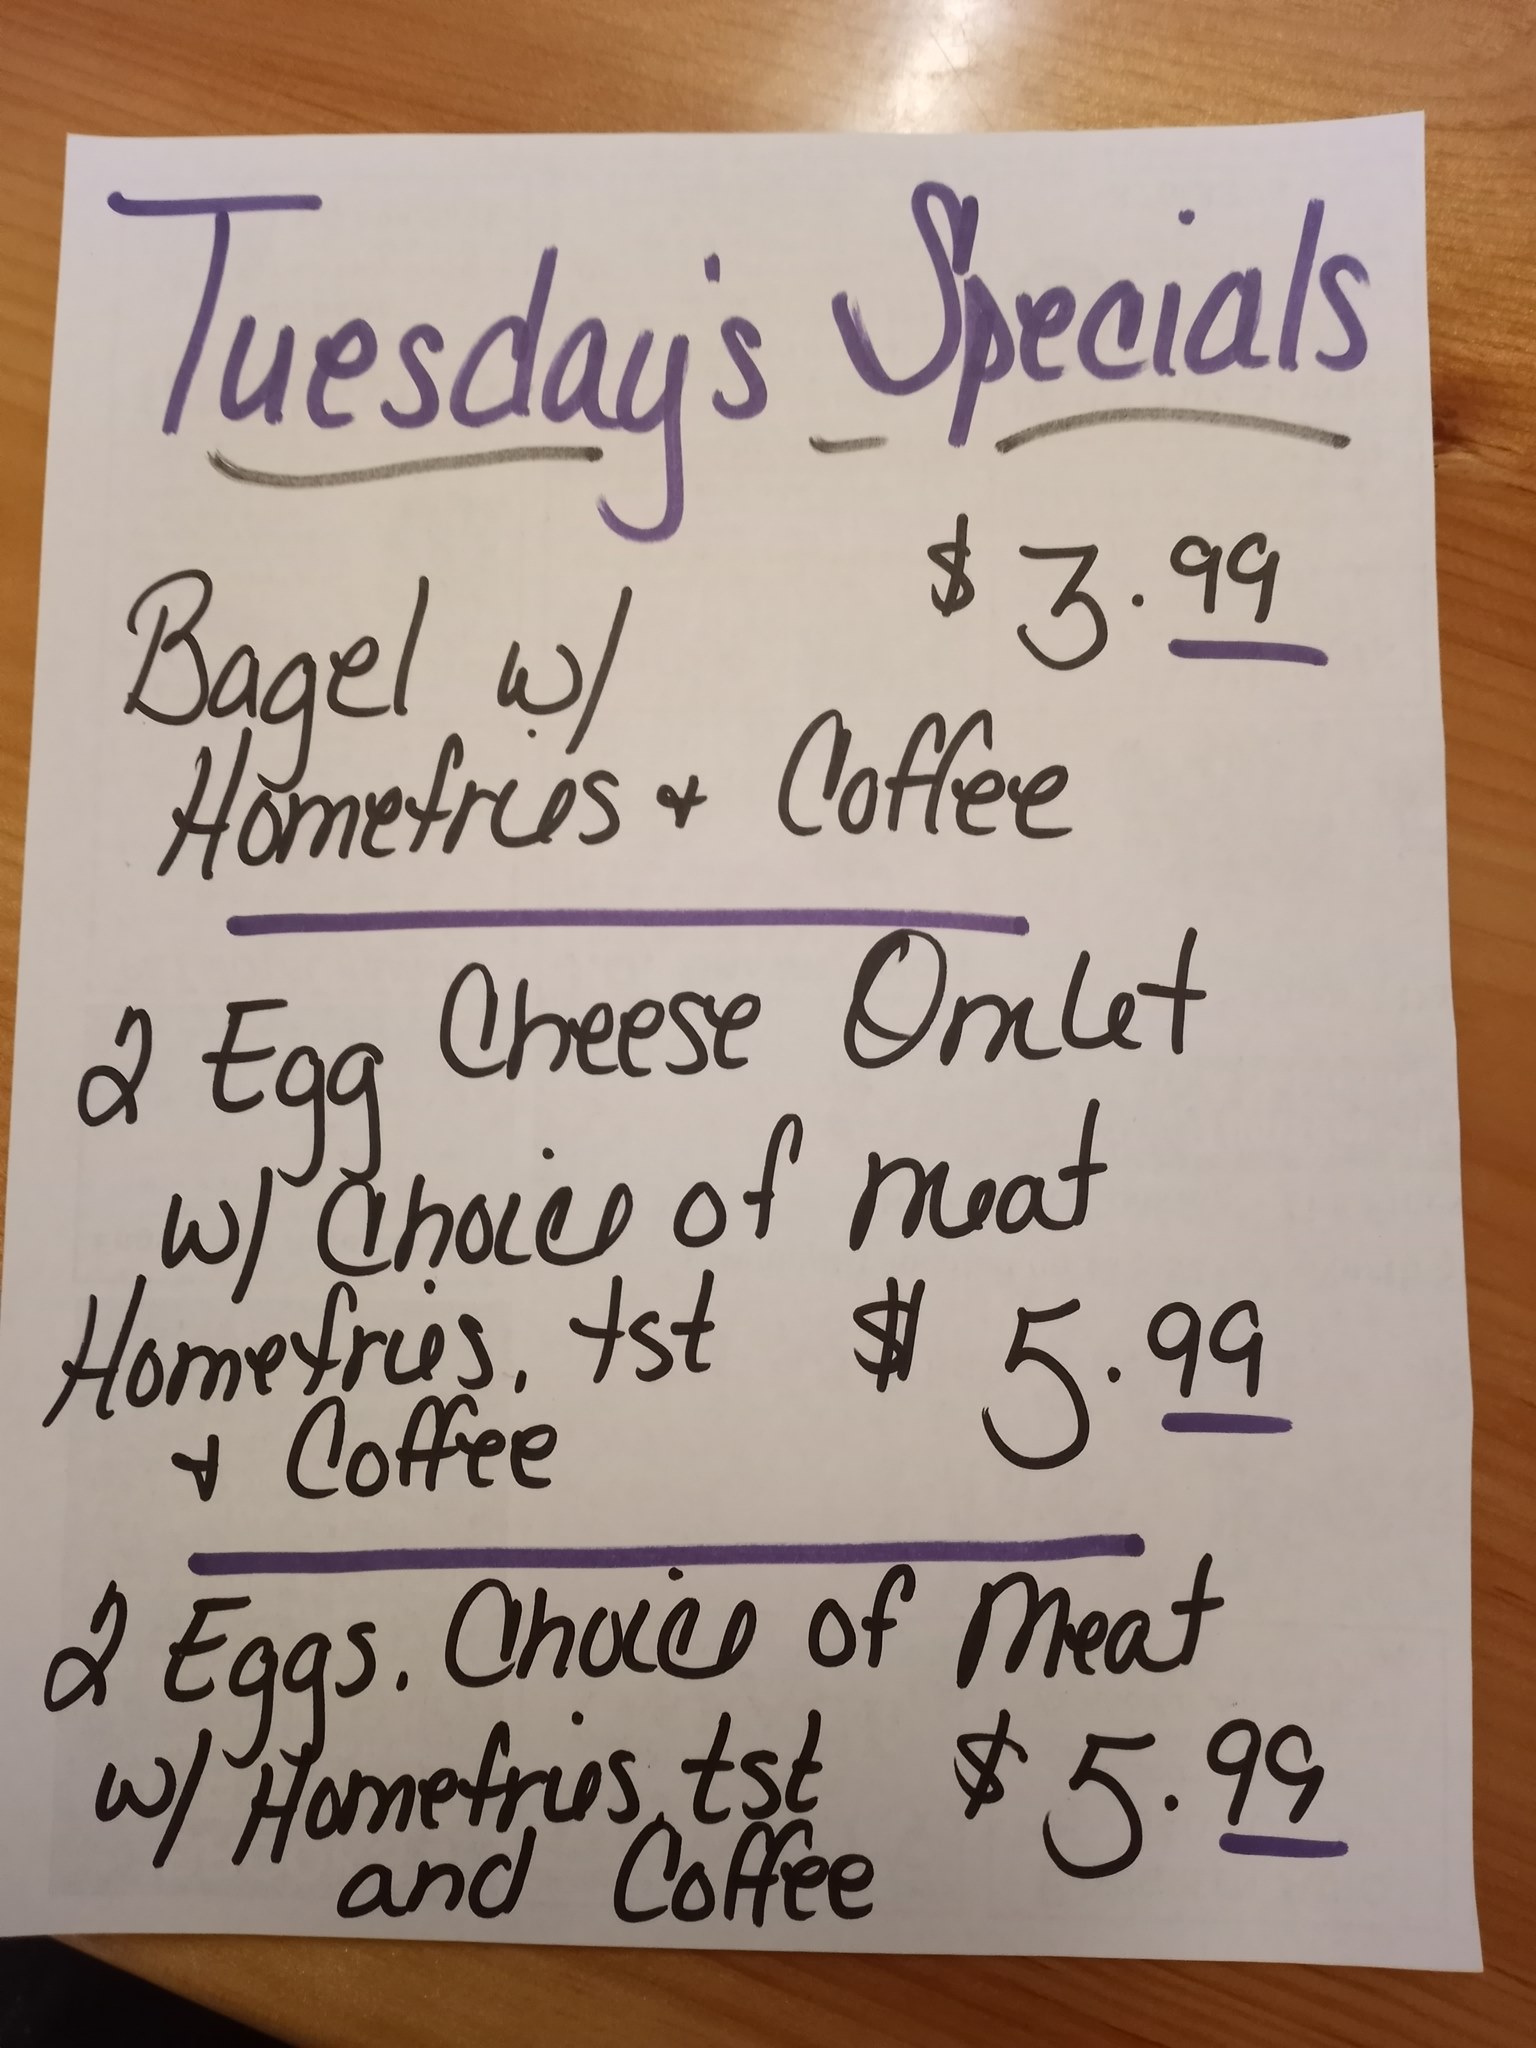 Tuesday's Specials
$3.99
Bagel w/
Homefries + Coffee
2 Egg Cheese Omlet
w/ Choice of meat
Homefries, tst $5.99
+ Coffee
2 Eggs, Choice of Meat
w/ Homefries, tst $5.99
and Coffee